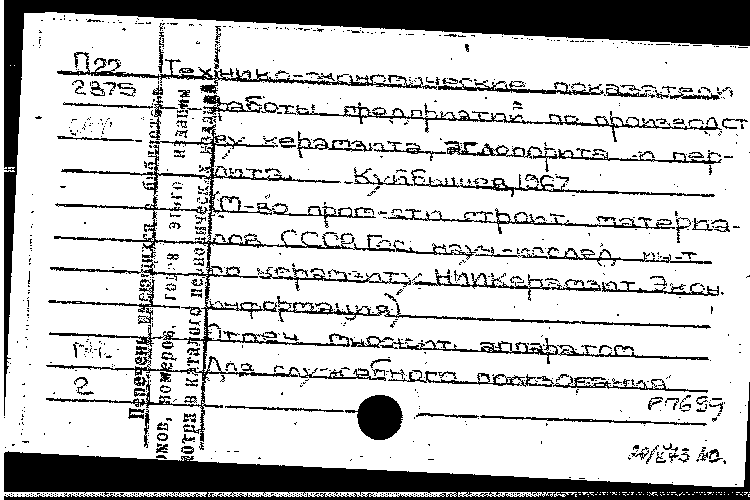 П22 Технико-экономические показатели
2375 работы предприятий по производст
ву керамзита, аглопорита и пер-
лита. Куйбышев, 1967
(М-во пром-сти строит. материа-
лов СССР. Гос. науч.-исслед. ин-т
по керамзиту НИИКерамзит. Экон.
информация)
Отпеч. множит. аппаратом
Для служебного пользования
2
Р7689
Перечень имеющихся в библиотеке
номеров, годов этого издания
смотри в каталоге периодических изданий